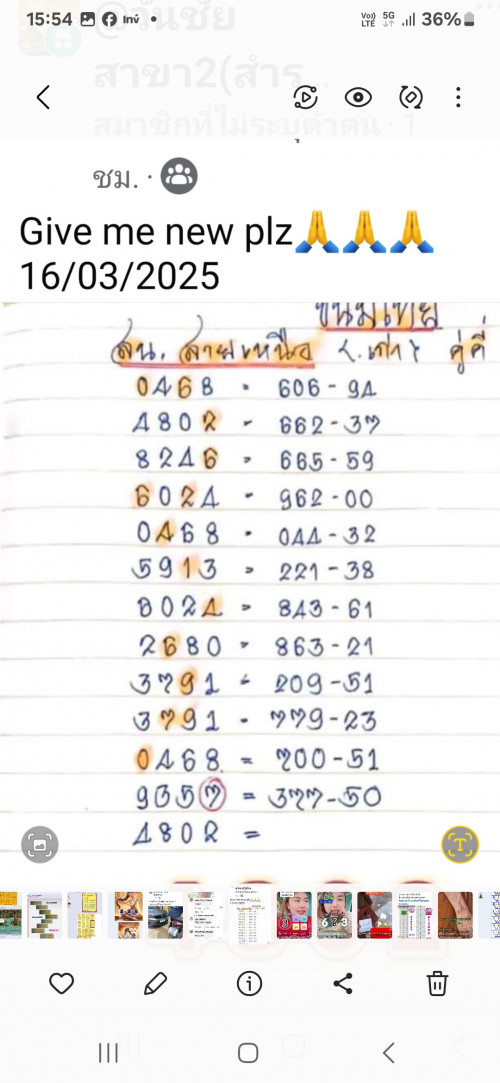 15:54 Inv • Vo)) LTE 5G 36%
@วันชัย
สาขา2(สำร
สมาชิกที่ไม่ระบุตัวตน · 1
ชม. ·
Give me new plz🙏🙏🙏
16/03/2025
ขนมไทย
สน. สายเหนือ
0468 - 606-94
4802 - 662-37
8246 = 665-59
6024 - 962-00
0468 - 044-32
5913 = 221-38
8024 = 843-61
2680 = 863-21
3791 = 209-51
3791 - 779-23
0468 = 700-51
9357 = 377-50
4802 =
T